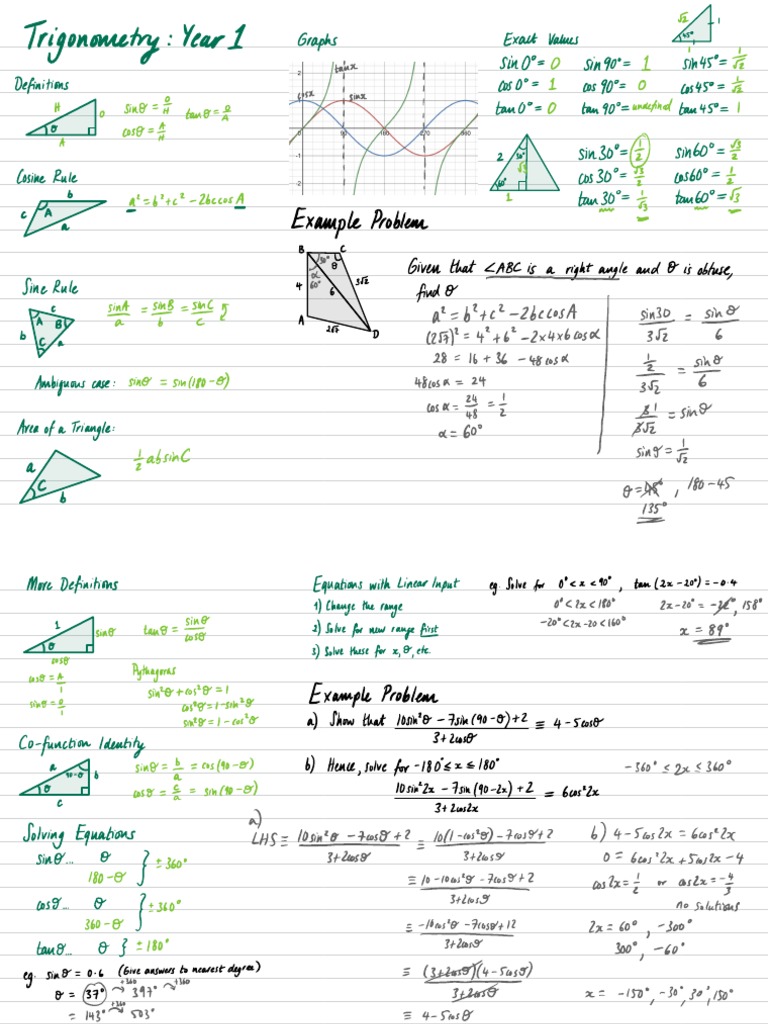 Trigonometry: Year 1
Definitions
H
O
θ
A
sinθ = O/H
cosθ = A/H
tanθ = O/A
Cosine Rule
b
c
A
a
a² = b² + c² - 2bc cos A
Sine Rule
c
A
B
b
C
a
sinA/a = sinB/b = sinC/c
Ambiguous case: sinθ = sin(180-θ)
Area of a Triangle:
a
C
b
½ ab sin C
Graphs
tanx
cosx
sinx
2
1
0
90
180
270
360
-1
-2
Exact Values
√2
1
45°
1
sin0° = 0 sin90° = 1 sin45° = 1/√2
cos0° = 1 cos90° = 0 cos45° = 1/√2
tan0° = 0 tan90° = undefined tan45° = 1
2
30°
√3
60°
1
sin30° = 1/2 sin60° = √3/2
cos30° = √3/2 cos60° = 1/2
tan30° = 1/√3 tan60° = √3
Example Problem
B
C
30°
θ
α
4
60°
6
3√2
A
2√7
D
Given that ∠ABC is a right angle and θ is obtuse,
find θ
a² = b² + c² - 2bc cosA
(2√7)² = 4² + 6² - 2×4×6 cosα
28 = 16 + 36 - 48cosα
48cosα = 24
cosα = 24/48 = 1/2
α = 60°
sin30/3√2 = sinθ/6
½/3√2 = sinθ/6
3 1/3√2 = sinθ
sinθ = 1/√2
θ = 45°, 180-45
135°
More Definitions
1
sinθ
θ
cosθ
tanθ = sinθ/cosθ
cosθ = A/1
sinθ = O/1
Pythagoras
sin²θ + cos²θ = 1
cos²θ = 1 - sin²θ
sin²θ = 1 - cos²θ
Co-function Identity
a
90-θ
b
θ
c
sinθ = b/a = cos(90-θ)
cosθ = c/a = sin(90-θ)
Solving Equations
sinθ... θ
180-θ
±360°
cosθ... θ
360-θ
±360°
tanθ... θ } ±180°
eg. sinθ = 0.6 (Give answers to nearest degree)
θ = 37° +360 397° +360
= 143° +360 503°
Equations with Linear Input
1) Change the range
2) Solve for new range first
3) Solve these for x, θ, etc.
eg. Solve for 0°<x<90°, tan(2x-20°) = -0.4
0°<2x<180°
-20°<2x-20<160°
2x-20° = -22°, 158°
x = 89°
Example Problem
a) Show that (10sin²θ - 7sin(90-θ) + 2)/(3+2cosθ) ≡ 4 - 5cosθ
b) Hence, solve for -180° ≤ x ≤ 180°
-360° ≤ 2x ≤ 360°
(10sin²2x - 7sin(90-2x) + 2)/(3+2cos2x) = 6cos²2x
a)
LHS ≡ (10sin²θ - 7cosθ + 2)/(3+2cosθ) ≡ (10(1-cos²θ) - 7cosθ + 2)/(3+2cosθ)
≡ (10 - 10cos²θ - 7cosθ + 2)/(3+2cosθ)
≡ (-10cos²θ - 7cosθ + 12)/(3+2cosθ)
≡ (3+2cosθ)(4-5cosθ)/(3+2cosθ)
≡ 4 - 5cosθ
b) 4 - 5cos2x = 6cos²2x
0 = 6cos²2x + 5cos2x - 4
cos2x = 1/2 or cos2x = -4/3
no solutions
2x = 60°, -300°
300°, -60°
x = -150°, -30°, 30°, 150°